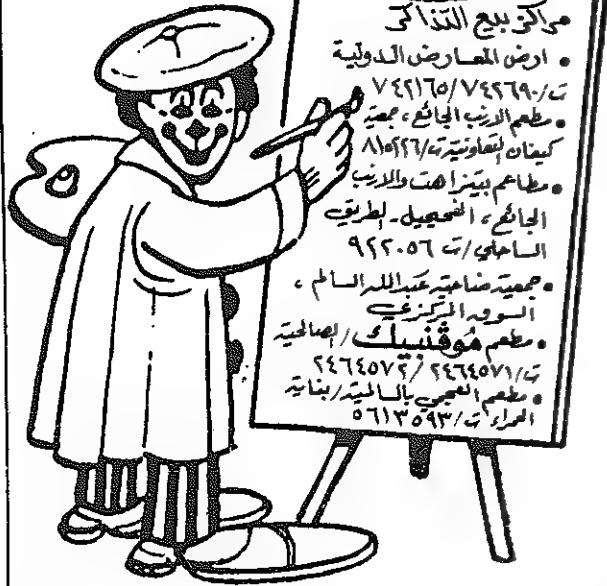 مراكز بيع التذاكر
• ارض المعارض الدولية
ت/٧٤٢١٦٥/٧٤٢٦٩٠
• مطعم الارنب الجائع، جمعية
كيفان التعاونية ت/٨١٥٢٢٦
• مطاعم بيتزا هت والارنب
الجائع، الفحيحيل - الطريق
الساحلي/ت ٩٢٢٠٥٦
• جمعية ضاحية عبدالله السالم،
السوق المركزي
• مطعم موڤنبيك/الصالحية
ت/٢٤٦٤٥٧١/٢٤٦٤٥٧٢
• مطعم العجمي بالسالمية/بناية
الحمراء ت/٥٦١٣٥٩٣